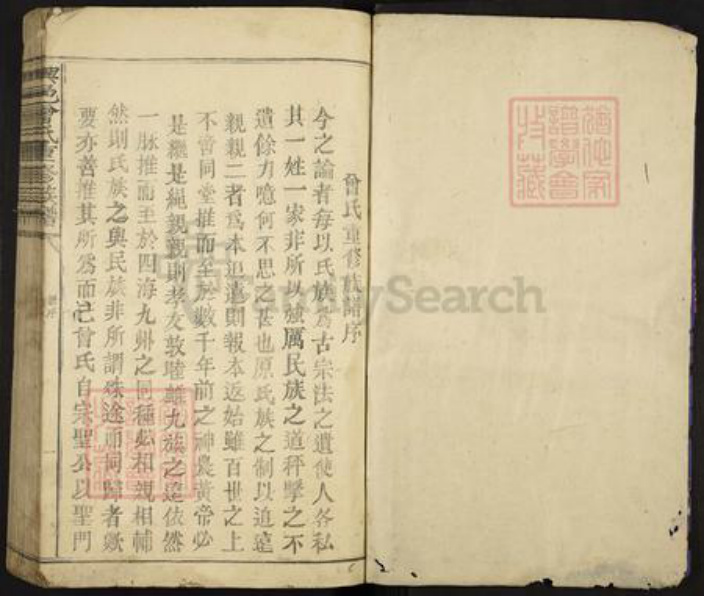 曾氏重修族譜序
今之論者每以氏族為古宗法之遺使人各私
其一姓一家非所以強厲民族之道秤擊之不
遺餘力噫何不思之甚也原氏族之制以追遠
親親二者為本追遠則報本返始雖百世之上
不啻同堂推而至於數千年前之神農黃帝必
是繼是繩親親則孝友敦睦雖九族之遠依然
一脉推而至於四海九州之同種必相親相輔
然則氏族之與民族非所謂殊途而同歸者歟
要亦善推其所為而已曾氏自宗聖公以聖門
興邑曾氏重修族譜
FamilySearch
猶他家
譜學會
收藏